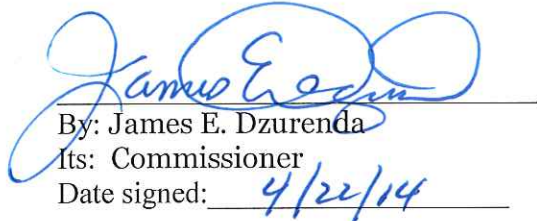 James E. Dzurenda
By: James E. Dzurenda
Its: Commissioner
Date signed: 4/22/14